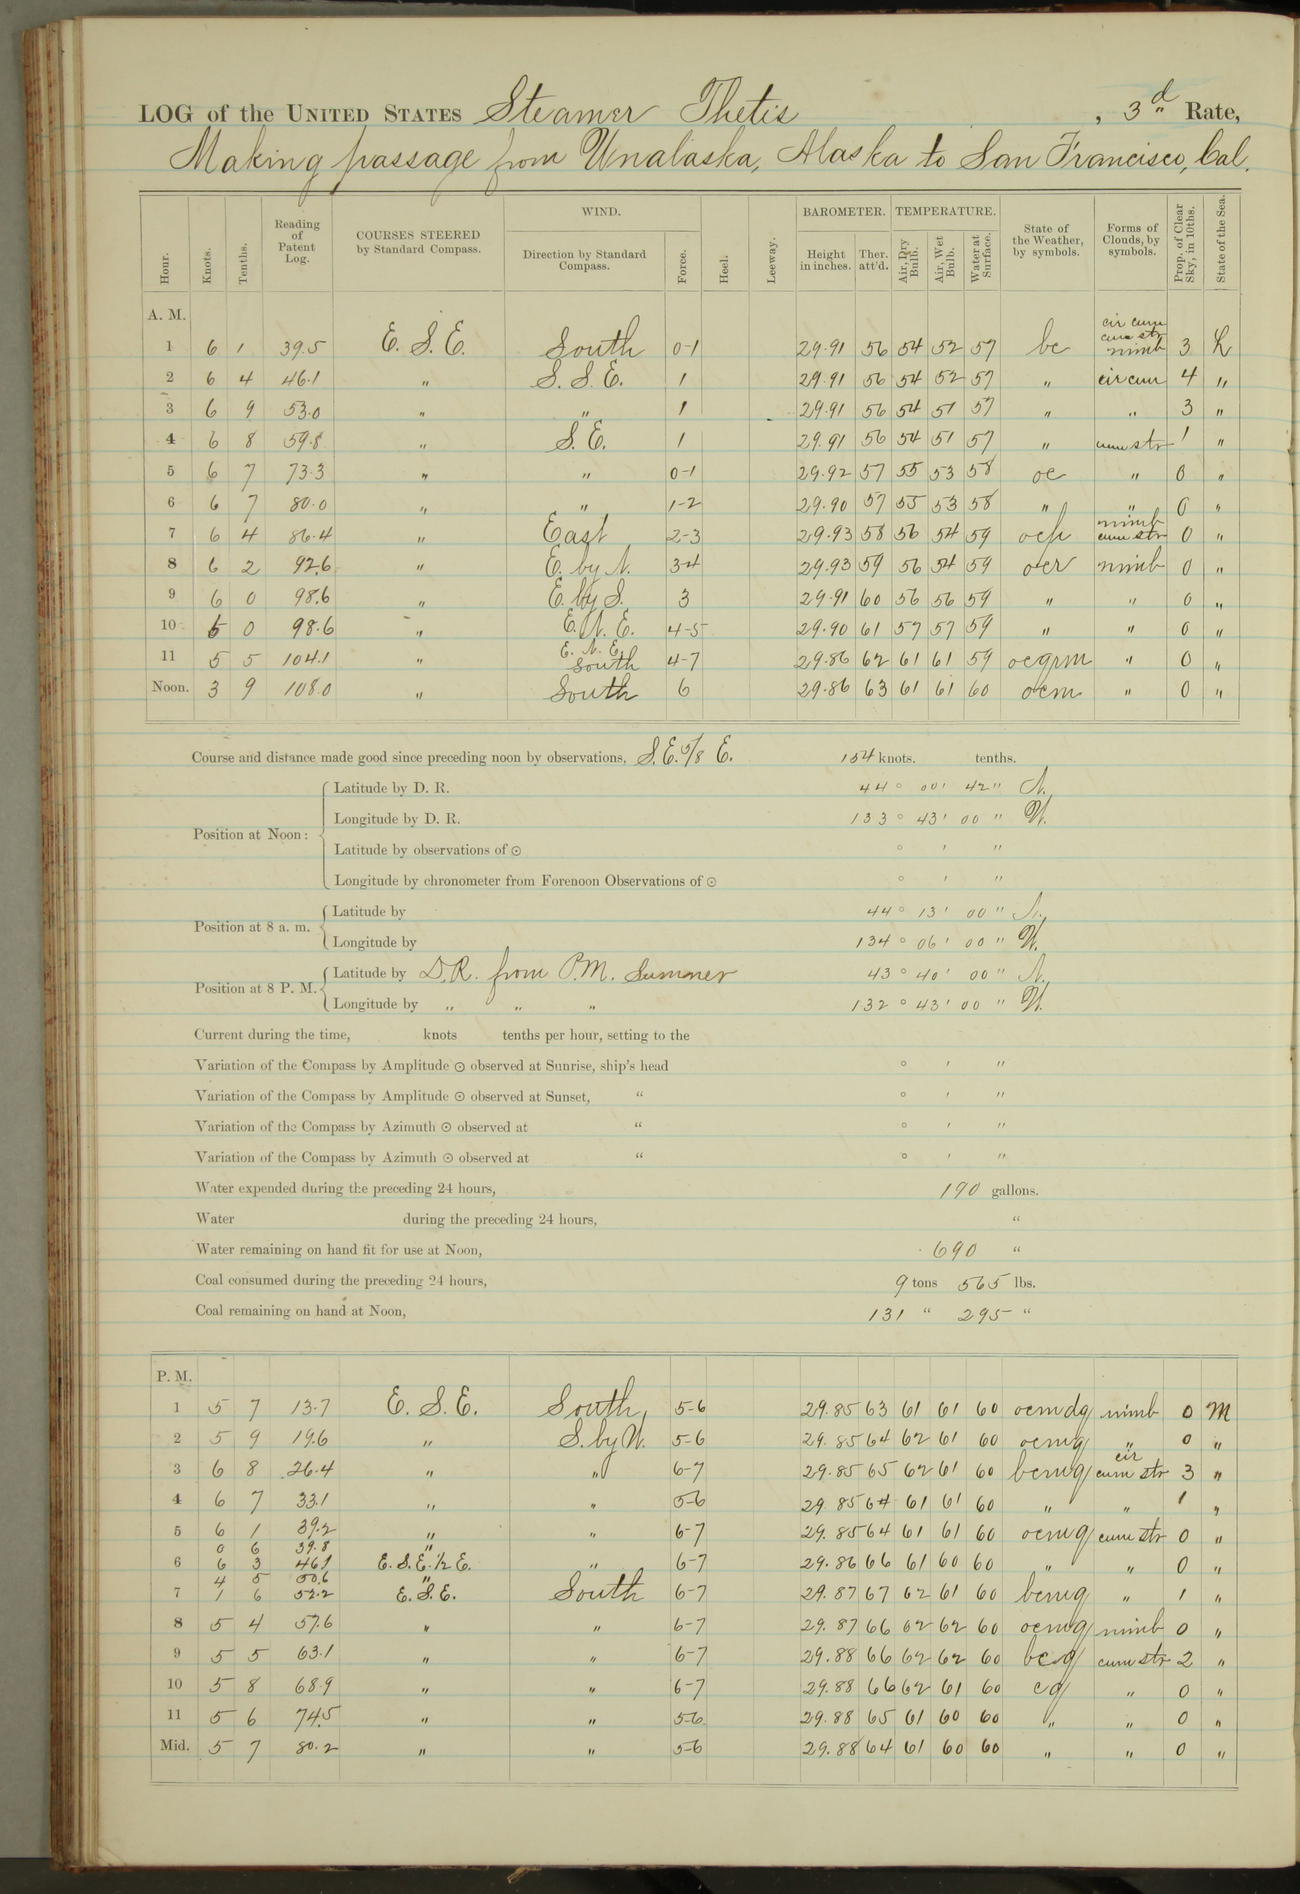 LOG of the UNITED STATES Steamer Thetis , 3d Rate,
Making passage from Unalaska, Alaska to San Francisco, Cal.
Hour. Knots. Tenths. Reading of Patent Log. COURSES STEERED by Standard Compass. WIND. Direction by Standard Compass. Force. Heel. Leeway. BAROMETER. Height in inches. Ther. att'd. TEMPERATURE. Air, Dry Bulb. Air, Wet Bulb. Water at Surface. State of the Weather, by symbols. Forms of Clouds, by symbols. Prop. of Clear Sky, in 10ths. State of the Sea.
A. M.
1 6 1 39.5 E. S. E. South 0-1 29.91 56 54 52 57 bc cir cum cum str nimb 3 L
2 6 4 46.1 " S. S. E. 1 29.91 56 54 52 57 " cir cum 4 "
3 6 9 53.0 " " 1 29.91 56 54 51 57 " " 3 "
4 6 8 59.8 " S. E. 1 29.91 56 54 51 57 " cum str 1 "
5 6 7 73.3 " " 0-1 29.92 57 55 53 58 oc " 0 "
6 6 7 80.0 " " 1-2 29.90 57 55 53 58 " " 0 "
7 6 4 86.4 " East 2-3 29.93 58 56 54 59 ocp nimb cum str 0 "
8 6 2 92.6 " E. by N. 3-4 29.93 59 56 54 59 ocr nimb 0 "
9 6 0 98.6 " E. by S. 3 29.91 60 56 56 59 " " 0 "
10 0 98.6 " E. N. E. 4-5 29.90 61 57 57 59 " " 0 "
11 5 5 104.1 " E. N. E. South 4-7 29.86 62 61 61 59 ocqrm " 0 "
Noon. 3 9 108.0 " South 6 29.86 63 61 61 60 ocm " 0 "
Course and distance made good since preceding noon by observations, S. E. 5/8 E. 154 knots. tenths.
Position at Noon: Latitude by D. R. 44° 00' 42" N.
Longitude by D. R. 133° 43' 00" W.
Latitude by observations of ☉ ° ' "
Longitude by chronometer from Forenoon Observations of ☉ ° ' "
Position at 8 a. m. Latitude by 44° 13' 00" N.
Longitude by 134° 06' 00" W.
Position at 8 P. M. Latitude by D.R. from P.M. Sumner 43° 40' 00" N.
Longitude by " " " 132° 43' 00" W.
Current during the time, knots tenths per hour, setting to the
Variation of the Compass by Amplitude ☉ observed at Sunrise, ship's head ° ' "
Variation of the Compass by Amplitude ☉ observed at Sunset, " ° ' "
Variation of the Compass by Azimuth ☉ observed at " ° ' "
Variation of the Compass by Azimuth ☉ observed at " ° ' "
Water expended during the preceding 24 hours, 190 gallons.
Water during the preceding 24 hours, "
Water remaining on hand fit for use at Noon, 690 "
Coal consumed during the preceding 24 hours, 9 tons 565 lbs.
Coal remaining on hand at Noon, 131 " 295 "
P. M.
1 5 7 13.7 E. S. E. South, 5-6 29.85 63 61 61 60 ocmdq nimb 0 M
2 5 9 19.6 " S. by W. 5-6 29.85 64 62 61 60 ocmq " 0 "
3 6 8 26.4 " " 6-7 29.85 65 62 61 60 bcmq cir cum str 3 "
4 6 7 33.1 " " 5-6 29.85 64 61 61 60 " " 1 "
5 6 1 39.2 " " 6-7 29.85 64 61 61 60 ocmq cum str 0 "
0 6 39.8 "
6 6 3 46.1 E. S. E. ½ E. " 6-7 29.86 66 61 60 60 " " 0 "
4 5 50.6 "
7 1 6 52.2 E. S. E. South 6-7 29.87 67 62 61 60 bcmq " 1 "
8 5 4 57.6 " " 6-7 29.87 66 62 62 60 ocmq nimb 0 "
9 5 5 63.1 " " 6-7 29.88 66 62 62 60 bcq cum str 2 "
10 5 8 68.9 " " 6-7 29.88 66 62 61 60 cq " 0 "
11 5 6 74.5 " " 5-6 29.88 65 61 60 60 " " 0 "
Mid. 5 7 80.2 " " 5-6 29.88 64 61 60 60 " " 0 "